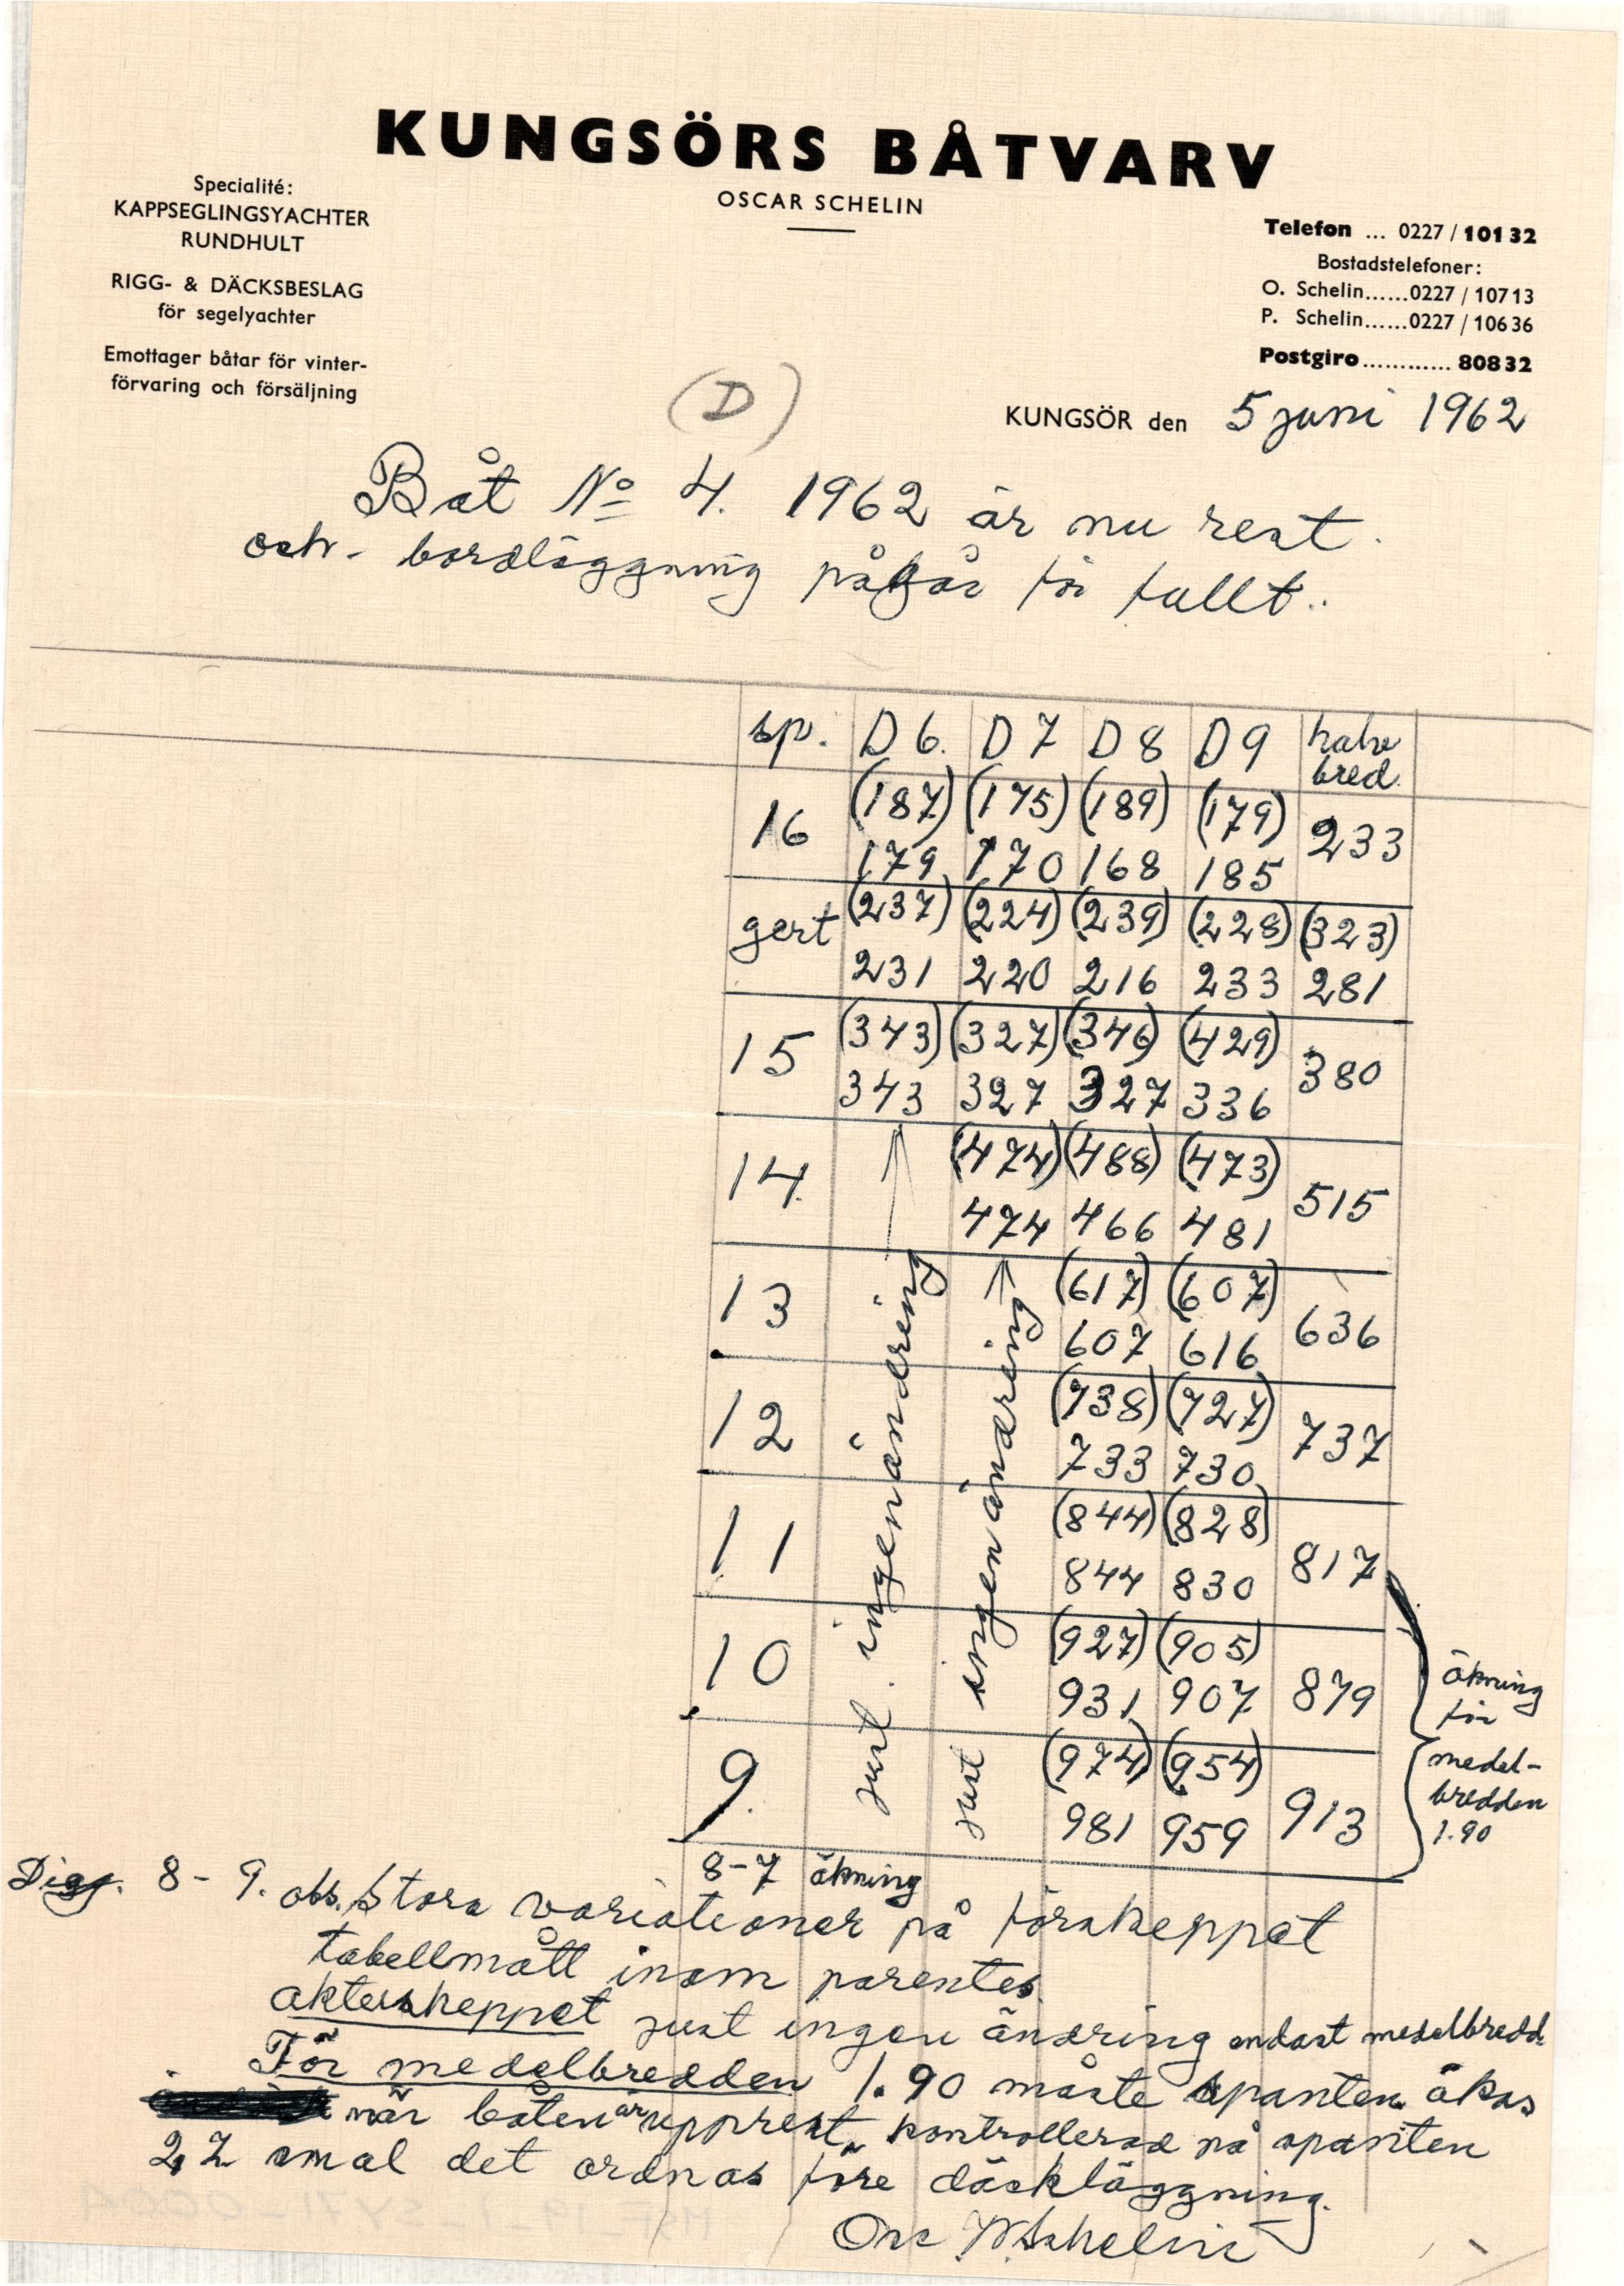 KUNGSÖRS BÅTVARV
OSCAR SCHELIN
Specialité:
KAPPSEGLINGSYACHTER
RUNDHULT
RIGG- & DÄCKSBESLAG
för segelyachter
Emottager båtar för vinter-
förvaring och försäljning
Telefon ... 0227 / 101 32
Bostadstelefoner:
O. Schelin......0227 / 107 13
P. Schelin......0227 / 106 36
Postgiro............ 808 32
(D)
KUNGSÖR den 5 juni 1962
Båt No 4. 1962 är nu rest.
och - bordläggning pågår för fullt..
sp. D 6. D 7 D 8 D 9 halv bred.
(187) (175) (189) (179)
16 179 170 168 185 233
(237) (224) (239) (228) (323)
gert 231 220 216 233 281
(343) (327) (346) (429)
15 343 327 327 336 380
(474) (488) (473)
14. 474 466 481 515
(617) (607)
13 607 616 636
(738) (727)
12 733 730 737
(844) (828)
11 844 830 817
(927) (905)
10 931 907 879
(974) (954)
9. 981 959 913
just. ingen ändring
just ingen ändring
ökning
för
medel-
bredden
1.90
8-7 ökning
8 - 9. obs. stora variationer på förskeppet
tabellmått inom parentes.
akterskeppet just ingen ändring endast medelbredd.
För medelbredden 1.90 måste spanten ökas
när båten är upprest, kontrollerad på spanten
2,2 smal det ordnas före däckläggning.
Osc W Schelin